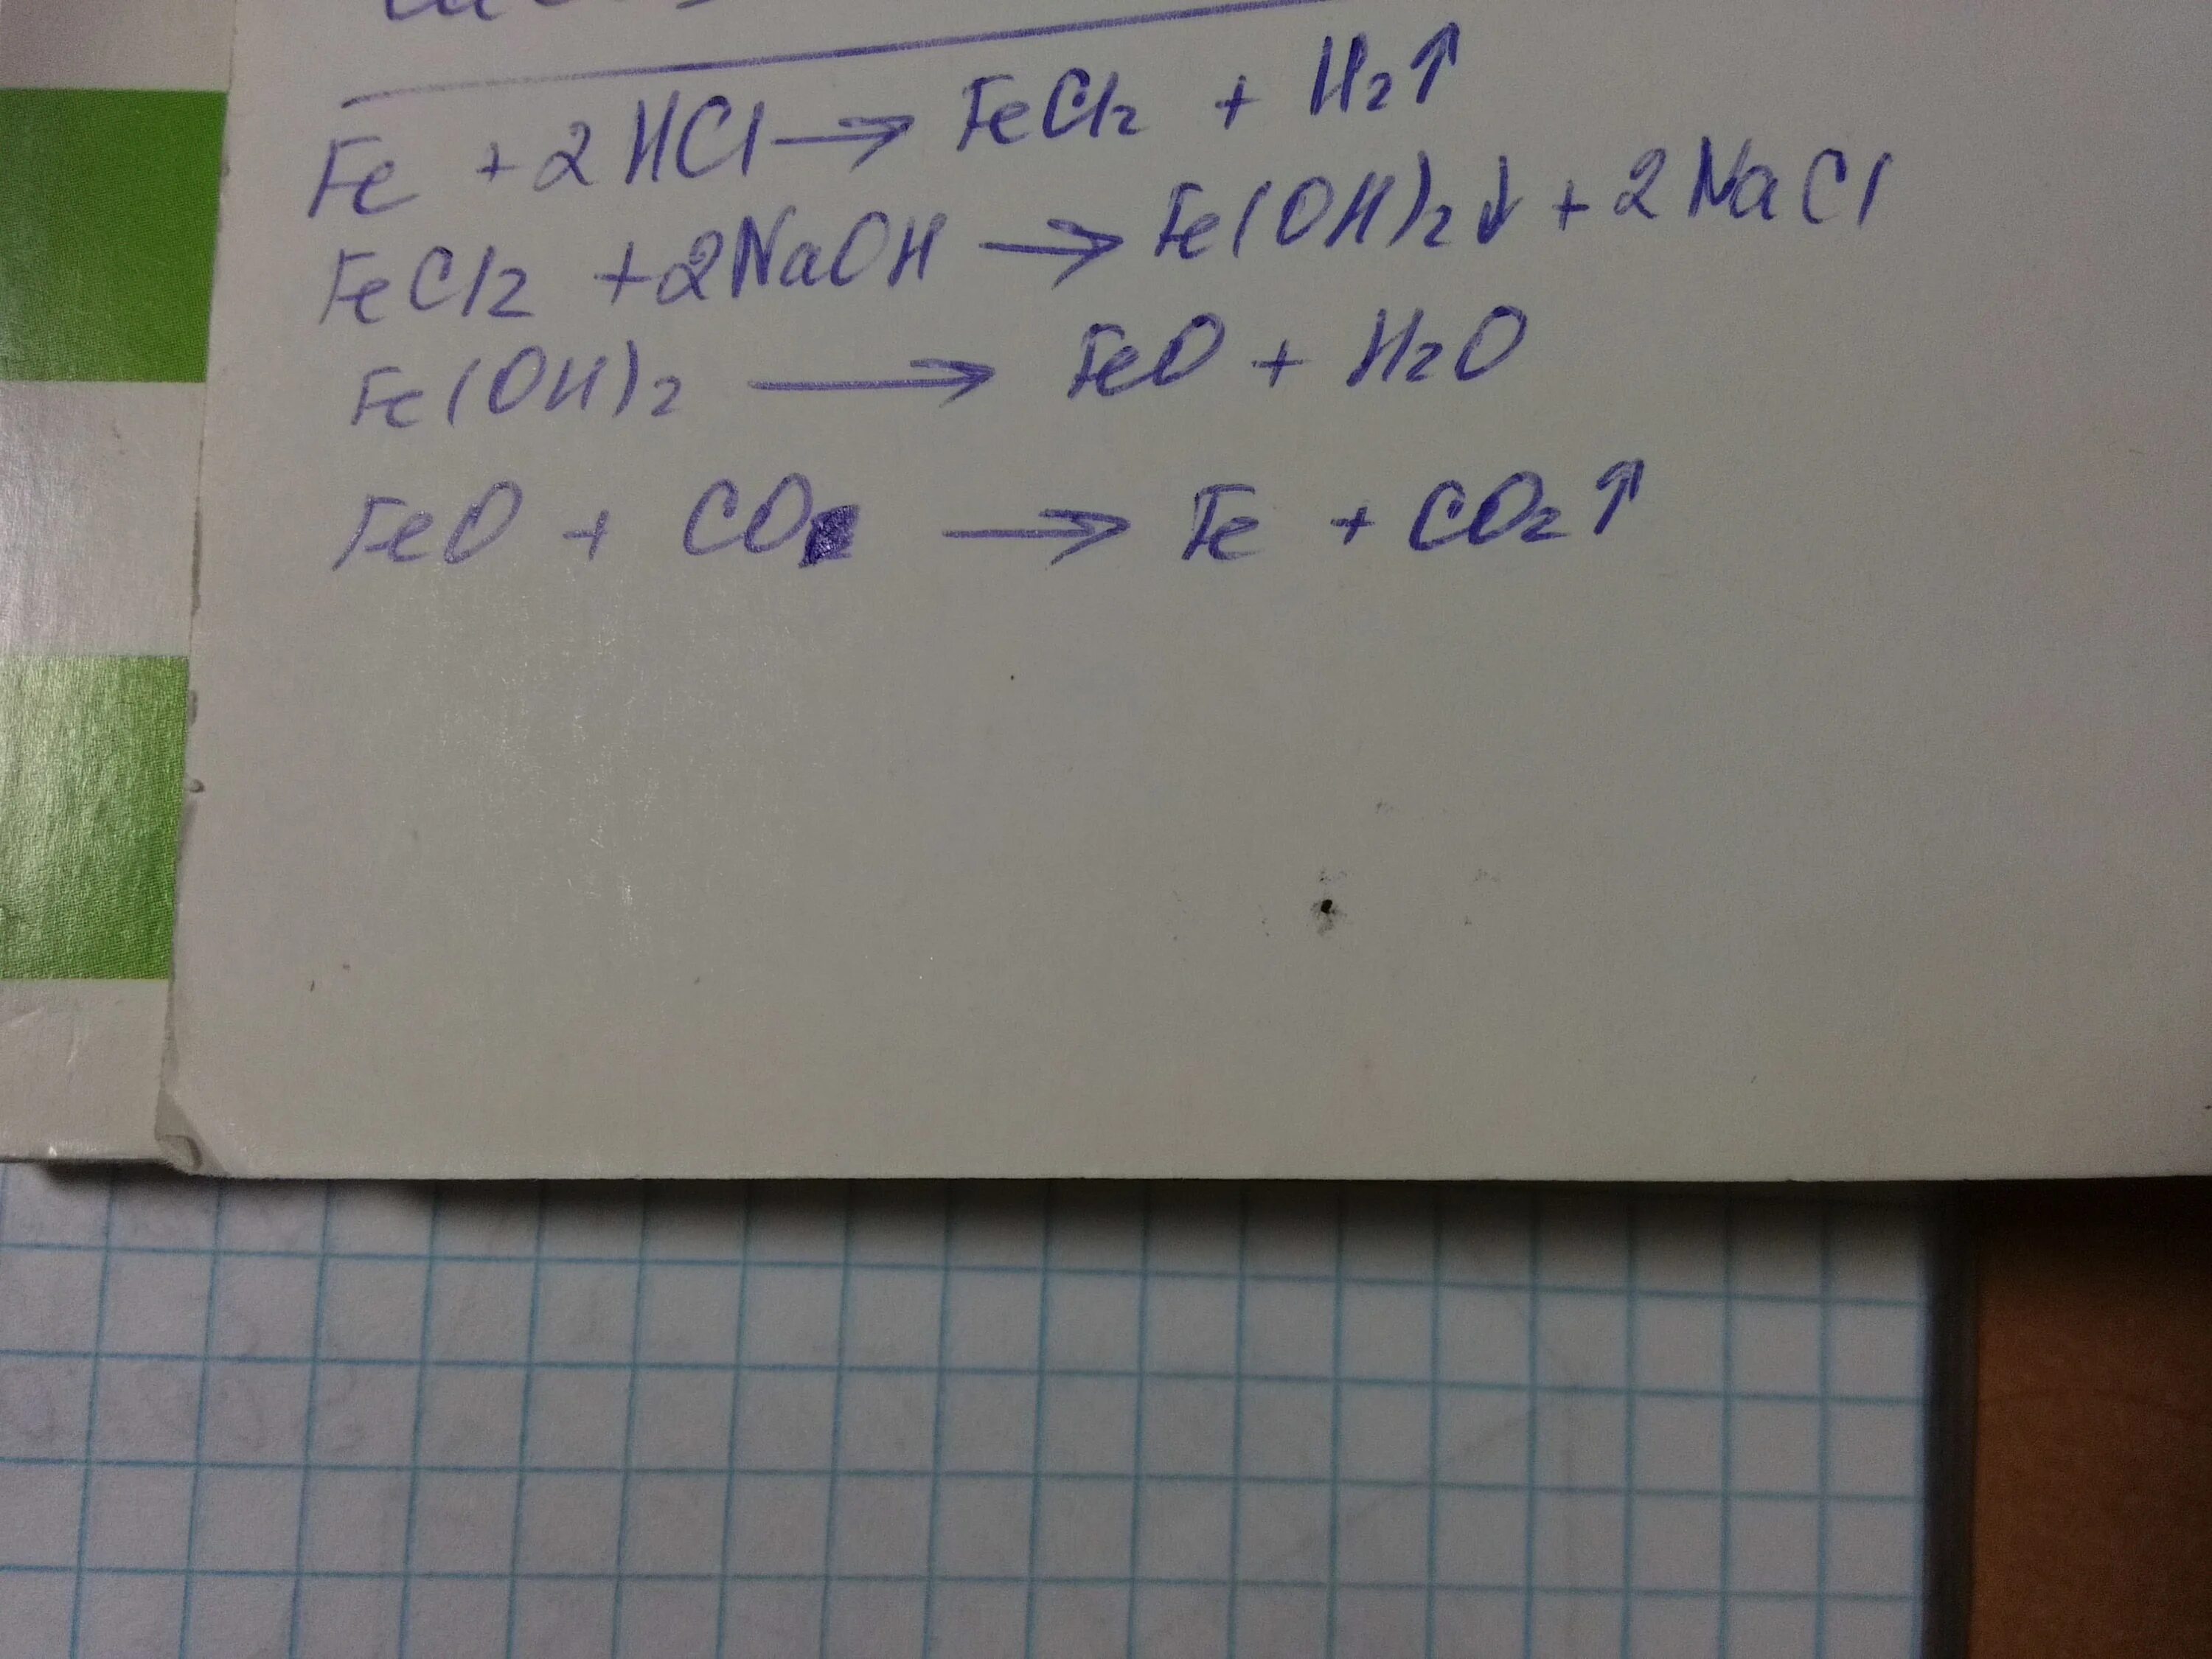 Fe + 2 HCl → FeCl₂ + H₂↑
FeCl₂ + 2NaOH → Fe(OH)₂↓ + 2 NaCl
Fe(OH)₂ → FeO + H₂O
FeO + CO → Fe + CO₂↑